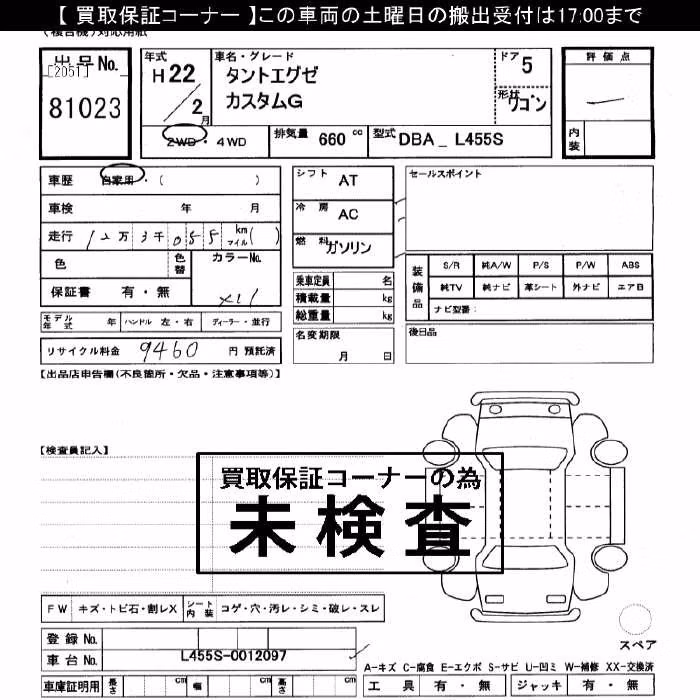 【 買取保証コーナー 】この車両の土曜日の搬出受付は17:00まで
(複合機)対応用紙
出品No.
[2051]
81023
年式
H22/2月
車名・グレード
タントエグゼ
カスタムG
ドア 5
形状 ワゴン
評価点
内装
2WD・4WD
排気量 660 cc
型式 DBA_ L455S
車歴 自家用・( )
車検 年 月
走行 12万3千055 km マイル( )
色
色替
カラーNo.
X11
保証書 有・無
モデル年式 年 ハンドル 左・右 ディーラー・並行
リサイクル料金 9460 円 預託済
シフト AT
冷房 AC
燃料 ガソリン
乗車定員 名
積載量 kg
総重量 kg
名変期限
月 日
セールスポイント
装備品
S/R 純A/W P/S P/W ABS
純TV 純ナビ 革シート 外ナビ エアB
ナビ型番:
後日品
【出品店申告欄(不良箇所・欠品・注意事項等)】
【検査員記入】
買取保証コーナーの為
未検査
FW キズ・トビ石・割レX
シート内装 コゲ・穴・汚レ・シミ・破レ・スレ
登録No.
車台No. L455S-0012097
車庫証明用 長さ cm 幅 cm 高さ cm
スペア
A-キズ C-腐食 E-エクボ S-サビ U-凹ミ W-補修 XX-交換済
工具 有・無 ジャッキ 有・無